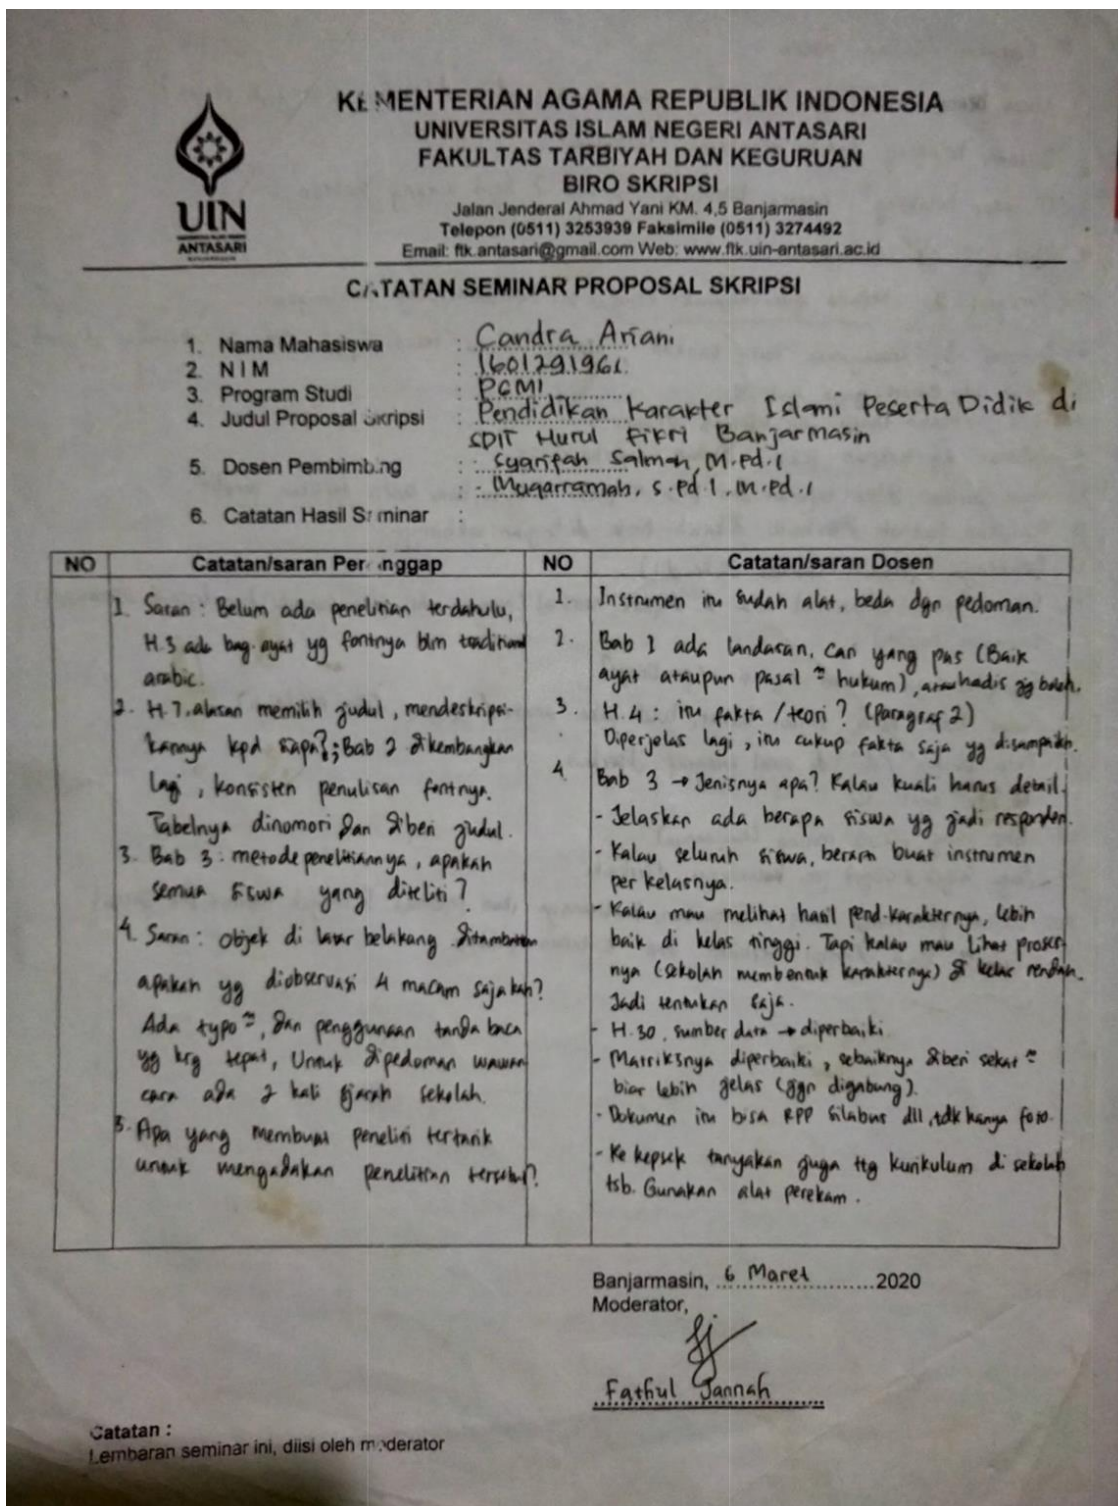 KEMENTERIAN AGAMA REPUBLIK INDONESIA
UNIVERSITAS ISLAM NEGERI ANTASARI
FAKULTAS TARBIYAH DAN KEGURUAN
BIRO SKRIPSI
Jalan Jenderal Ahmad Yani KM. 4,5 Banjarmasin
Telepon (0511) 3253939 Faksimile (0511) 3274492
Email: ftk.antasari@gmail.com Web: www.ftk.uin-antasari.ac.id
UIN
ANTASARI
CATATAN SEMINAR PROPOSAL SKRIPSI
1. Nama Mahasiswa : Candra Ariani
2. NIM : 1601291961
3. Program Studi : PGMI
4. Judul Proposal Skripsi : Pendidikan Karakter Islami Peserta Didik di
SDIT Nurul Fikri Banjarmasin
5. Dosen Pembimbing : - Syarifah Salmah, M.Pd.I
: - Muqarramah, S.Pd.I, M.Pd.I
6. Catatan Hasil Seminar :
NO Catatan/saran Penanggap
1. Saran : Belum ada penelitian terdahulu,
H.3 ada bag. ayat yg fontnya blm traditional
arabic.
2. H.7. alasan memilih judul, mendeskripsi-
kannya kpd siapa?; Bab 2 dikembangkan
lagi, konsisten penulisan fontnya.
Tabelnya dinomori dan diberi judul.
3. Bab 3 : metode penelitiannya, apakah
semua siswa yang diteliti?
4. Saran : Objek di latar belakang ditambahkan
apakah yg diobservasi 4 macam saja kah?
Ada typo ², dan penggunaan tanda baca
yg krg tepat, Untuk dipedoman wawan
cara ada 2 kali sejarah sekolah.
5. Apa yang membuat peneliti tertarik
untuk mengadakan penelitian tersebut?
NO Catatan/saran Dosen
1. Instrumen itu sudah alat, beda dgn pedoman.
2. Bab 1 ada landasan, cari yang pas (Baik
ayat ataupun pasal ² hukum), atau hadis jg boleh.
3. H.4 : itu fakta / teori ? (Paragraf 2)
Diperjelas lagi, itu cukup fakta saja yg disampaikn.
4. Bab 3 → Jenisnya apa? Kalau kuali harus detail.
- Jelaskan ada berapa siswa yg jadi responden.
- Kalau seluruh siswa, berarti buat instrumen
per kelasnya.
- Kalau mau melihat hasil pend. karakternya, lebih
baik di kelas tinggi. Tapi kalau mau lihat proses-
nya (sekolah membentuk karakternya) di kelas rendah.
Jadi tentukan saja.
- H.30, sumber data → diperbaiki.
- Matriksnya diperbaiki, sebaiknya diberi sekat ²
biar lebih jelas (jgn digabung).
- Dokumen itu bisa RPP silabus dll, tdk hanya foto.
- Ke kepsek tanyakan juga ttg kurikulum di sekolah
tsb. Gunakan alat perekam.
Banjarmasin, 6 Maret 2020
Moderator,
Fathul Jannah
Catatan :
Lembaran seminar ini, diisi oleh moderator